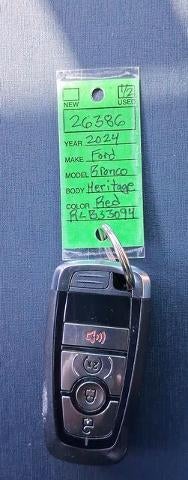 NEW 1/2 USED
26386
YEAR 2024
MAKE Ford
MODEL Bronco
BODY Heritage
COLOR Red
RLB33094